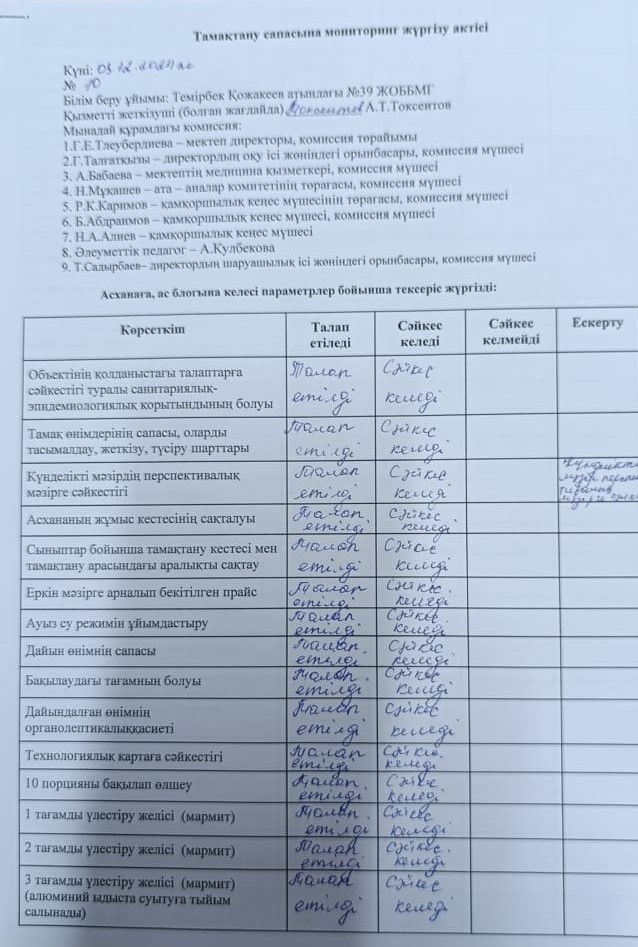 Тамақтану сапасына мониторинг жүргізу актісі
Күні: 03.12.2024ж
№ 10
Білім беру ұйымы: Темірбек Қожакеев атындағы №39 ЖОББМГ
Қызметті жеткізуші (болған жағдайда) Токсеитов А.Т.Токсеитов
Мынадай құрамдағы комиссия:
1.Г.Е.Тлеубердиева – мектеп директоры, комиссия төрайымы
2.Г.Талғатқызы – директордың оқу ісі жөніндегі орынбасары, комиссия мүшесі
3. А.Бабаева – мектептің медицина қызметкері, комиссия мүшесі
4. Н.Мұқашев – ата – аналар комитетінің төрағасы, комиссия мүшесі
5. Р.К.Каримов – қамқоршылық кеңес мүшесінің төрағасы, комиссия мүшесі
6. Б.Абдраимов – қамқоршылық кеңес мүшесі, комиссия мүшесі
7. Н.А.Алиев – қамқоршылық кеңес мүшесі
8. Әлеуметтік педагог – А.Кулбекова
9. Т.Садырбаев– директордың шаруашылық ісі жөніндегі орынбасары, комиссия мүшесі
Асханаға, ас блогына келесі параметрлер бойынша тексеріс жүргізді:
Көрсеткіш Талап Сәйкес Сәйкес Ескерту
етіледі келеді келмейді
Объектінің қолданыстағы талаптарға Талап Сәйкес
сәйкестігі туралы санитариялық-
эпидемиологиялық қорытындының болуы етілді келеді
Тамақ өнімдерінің сапасы, оларды Талап Сәйкес
тасымалдау, жеткізу, түсіру шарттары етілді келеді
Күнделікті мәзірдің перспективалық Талап Сәйкес
мәзірге сәйкестігі етілді келеді
Асхананың жұмыс кестесінің сақталуы Талап Сәйкес
етілді келеді
Сыныптар бойынша тамақтану кестесі мен Талап Сәйкес
тамақтану арасындағы аралықты сақтау етілді келеді
Еркін мәзірге арналып бекітілген прайс Талап Сәйкес.
етілді келеді
Ауыз су режимін ұйымдастыру Талап Сәйкес
етілді келеді
Дайын өнімнің сапасы Талап. Сәйкес
етілді келеді
Бақылаудағы тағамның болуы Талап. Сәйкес
етілді келеді
Дайындалған өнімнің Талап Сәйкес
органолептикалыққасиеті етілді келеді
Технологиялық картаға сәйкестігі Талап Сәйкес.
етілді келеді
10 порцияны бақылап өлшеу Талап. Сәйкес
етілді келеді
1 тағамды үлестіру желісі (мармит) Талап. Сәйкес
етілді келеді
2 тағамды үлестіру желісі (мармит) Талап Сәйкес.
етілді келеді
3 тағамды үлестіру желісі (мармит) Талап Сәйкес
(алюминий ыдыста суытуға тыйым
салынады) етілді келеді